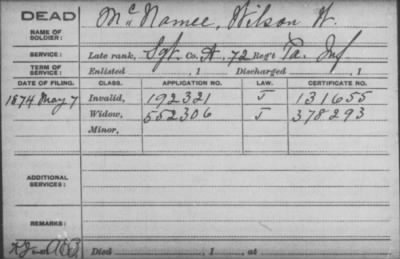 DEAD
Mc Namee, Wilson W.
NAME OF SOLDIER:
SERVICE: Late rank, Sgt. Co. A, 72 Reg't Pa. Inf
TERM OF SERVICE: Enlisted , 1 Discharged , 1
DATE OF FILING. CLASS. APPLICATION NO. LAW. CERTIFICATE NO.
1874 May 7 Invalid, 192321 J 131655
Widow, 552306 J 378293
Minor,
ADDITIONAL SERVICES:
REMARKS:
Died , 1 , at